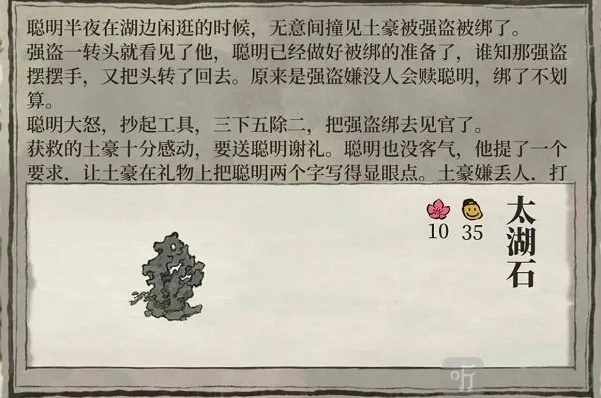 聪明半夜在湖边闲逛的时候，无意间撞见土豪被强盗被绑了。
强盗一转头就看见了他，聪明已经做好被绑的准备了，谁知那强盗
摆摆手，又把头转了回去。原来是强盗嫌没人会赎聪明，绑了不划
算。
聪明大怒，抄起工具，三下五除二，把强盗绑去见官了。
获救的土豪十分感动，要送聪明谢礼。聪明也没客气，他提了一个
要求，让土豪在礼物上把聪明两个字写得显眼点。土豪嫌丢人，打
太湖石
10 35
听